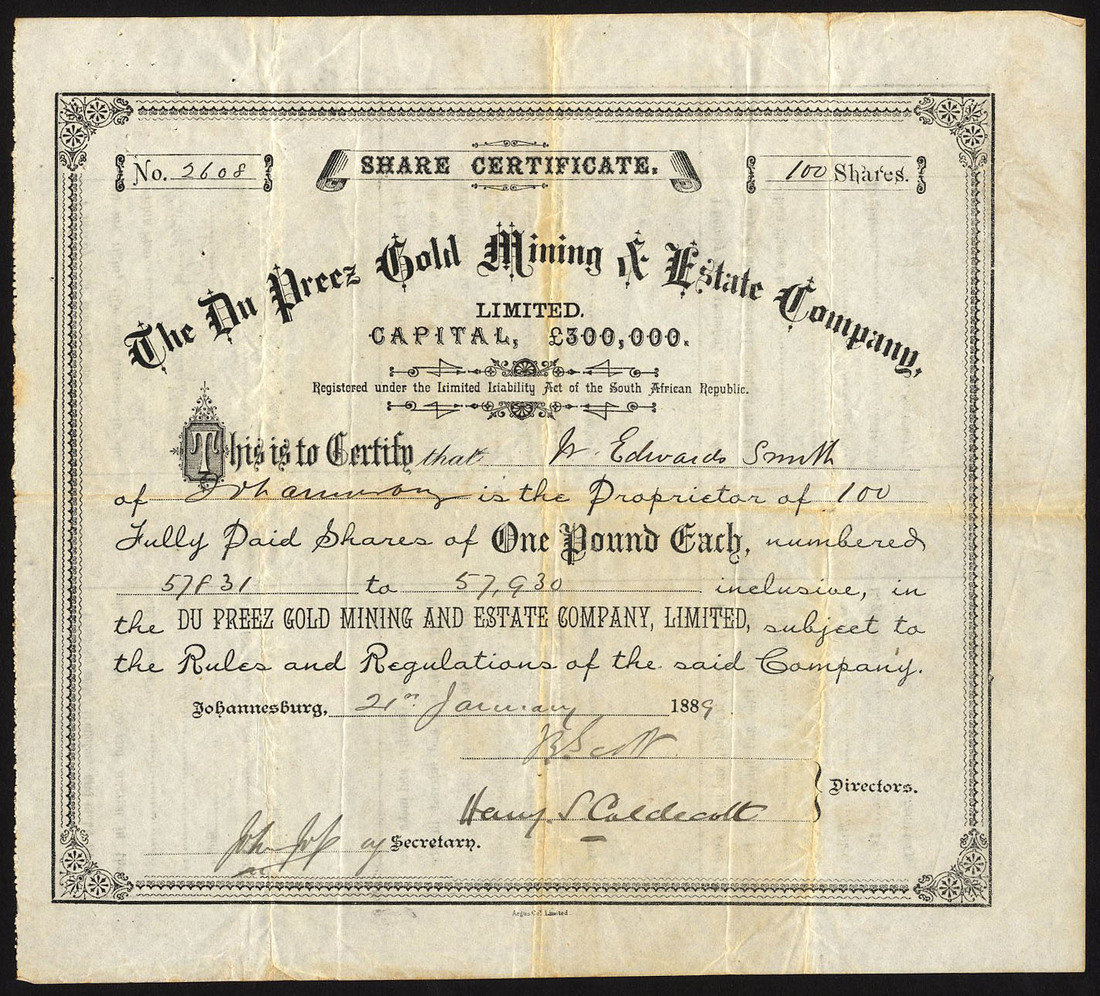 No. 2608
SHARE CERTIFICATE.
100 Shares.
The Du Preez Gold Mining & Estate Company,
LIMITED.
CAPITAL, £300,000.
Registered under the Limited Liability Act of the South African Republic.
This is to Certify that W. Edwards Smith
of Johannesburg is the Proprietor of 100
Fully Paid Shares of One Pound Each, numbered
57831 to 57,930 inclusive, in
the DU PREEZ GOLD MINING AND ESTATE COMPANY, LIMITED, subject to
the Rules and Regulations of the said Company.
Johannesburg, 21st January 1889
Scott
Directors.
Henry S Caldecott
Secretary.
Argus Coy. Limited.